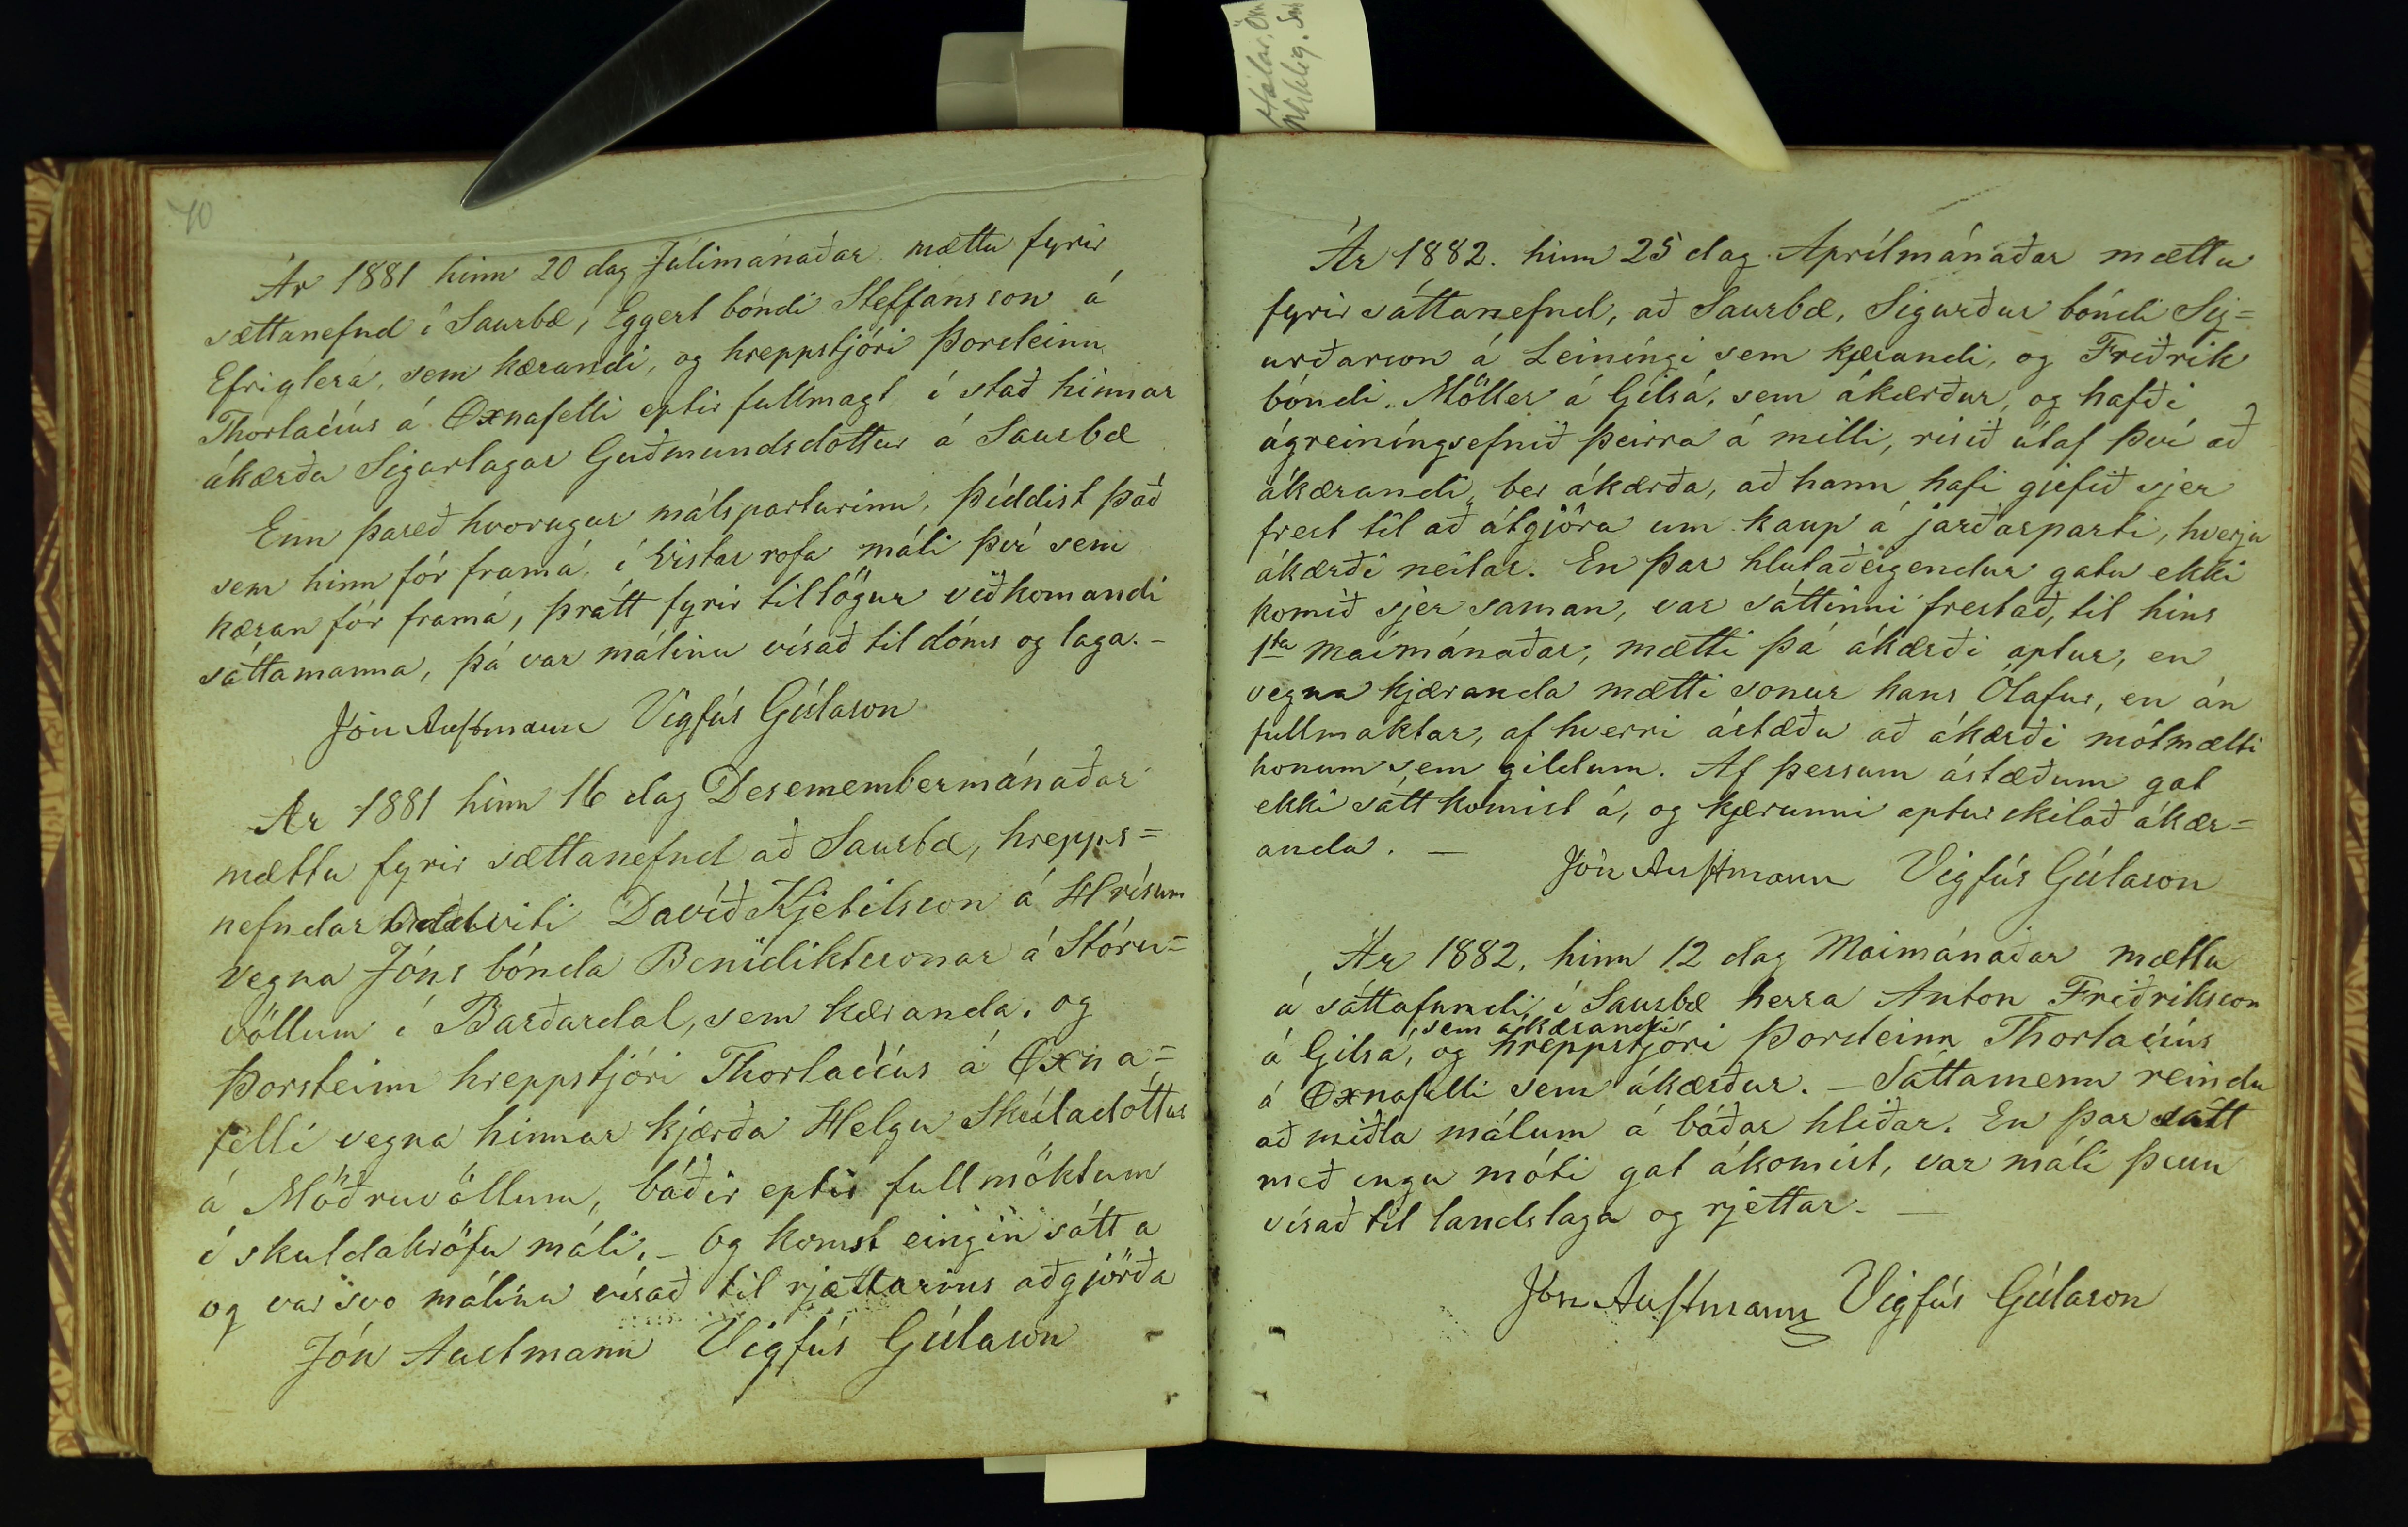 70
Ár 1881 hinn 20 dag Júlímánaðar mættu fyrir
sættanefnd í Saurbæ, Eggert bóndi Steffánsson á
Efriglerá, sem kærandi, og hreppstjóri Þorsteinn
Thorlacíus á Øxnafelli eptir fullmagt í stað hinnar
ákærðu Sigurlagar Guðmundsdóttur á Saurbæ
Enn þareð hvorugur málsparturinn, þíddist það
sem hinn fór framá, í vistar rofa máli því sem
kæran fór framá, þrátt fyrir tillögur viðkomandi
sáttamanna, þá var málinu vísað til dóms og laga. –
Jón Austmann Vigfús Gíslason
Ár 1881 hinn 16 dag Desemembermánaðar
mættu fyrir sættanefnd að Saurbæ, hrepps=
nefndar oddviti Davíð Kjetilsson á Hrísum
vegna Jóns bónda Benidiktssonar á Stóru=
völlum í Barðardal, sem kæranda, og
Þorsteinn hreppstjóri Thorlacíus á Øxna=
felli vegna hinnar kjærða Helgu Skúladóttur
á Möðruvöllum, báðir eptir fullmöktum
í skuldakröfu máli. – Og komst eingin sátt a
og var svo málinu vísað til rjættarins aðgjörða
Jón Austmann Vigfús Gíslason
Hólar, Öxn
Miklig. Sau
Ár 1882. hinn 25 dag Aprílmánaðar mættu
fyrir sáttanefnd, að Saurbæ, Sigurður bóndi Sig=
urðarson á Leiníngi sem kjærandi, og Friðrik
bóndi Möller á Gilsá, sem ákærður, og hafði
ágreiníngsefnið þeirra á milli, risið útaf því að
ákærandi, ber ákærða, að hann hafi gjefið sjer
frest til að útgjöra um kaup á jarðarparti, hverju
ákærði neitar. En þar hlutaðeigendur gatu ekki
komið sjer saman, var sáttinni frestað, til hins
1sta Maímánaðar, mætti þá ákærði aptur, en
vegna kjæranda mætti sonur hans Ólafur, en án
fullmaktar, af hverri ástæðu að ákærði mótmælti
honum sem gildum. Af þessum ástæðum gat
ekki sátt komist á, og kjærunni aptur skilað ákær=
anda. –
Jón Austmann Vigfús Gíslason
Ár 1882. hinn 12 dag Maimánaðar mættu
á sáttafundi, í Saurbæ herra Anton Friðriksson
, sem ákærandi
á Gilsá, og hreppstjóri Þorsteinn Thorlacíus
á Øxnafelli sem ákærður. – Sáttamenn reindu
að miðla málum á báðar hliðar. En þar sátt
með engu móti gat ákomist, var máli þessu
vísað til landslaga og rjettar. –
Jón Austmann Vigfús Gíslason